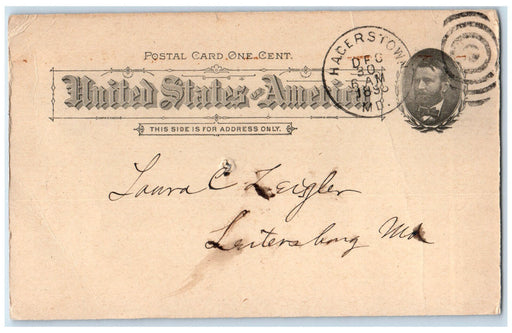 POSTAL CARD, ONE CENT.
United States of America
THIS SIDE IS FOR ADDRESS ONLY.
HAGERSTOWN
DEC
30
6 AM
MD
Laura C Zeigler
Leitersburg Md